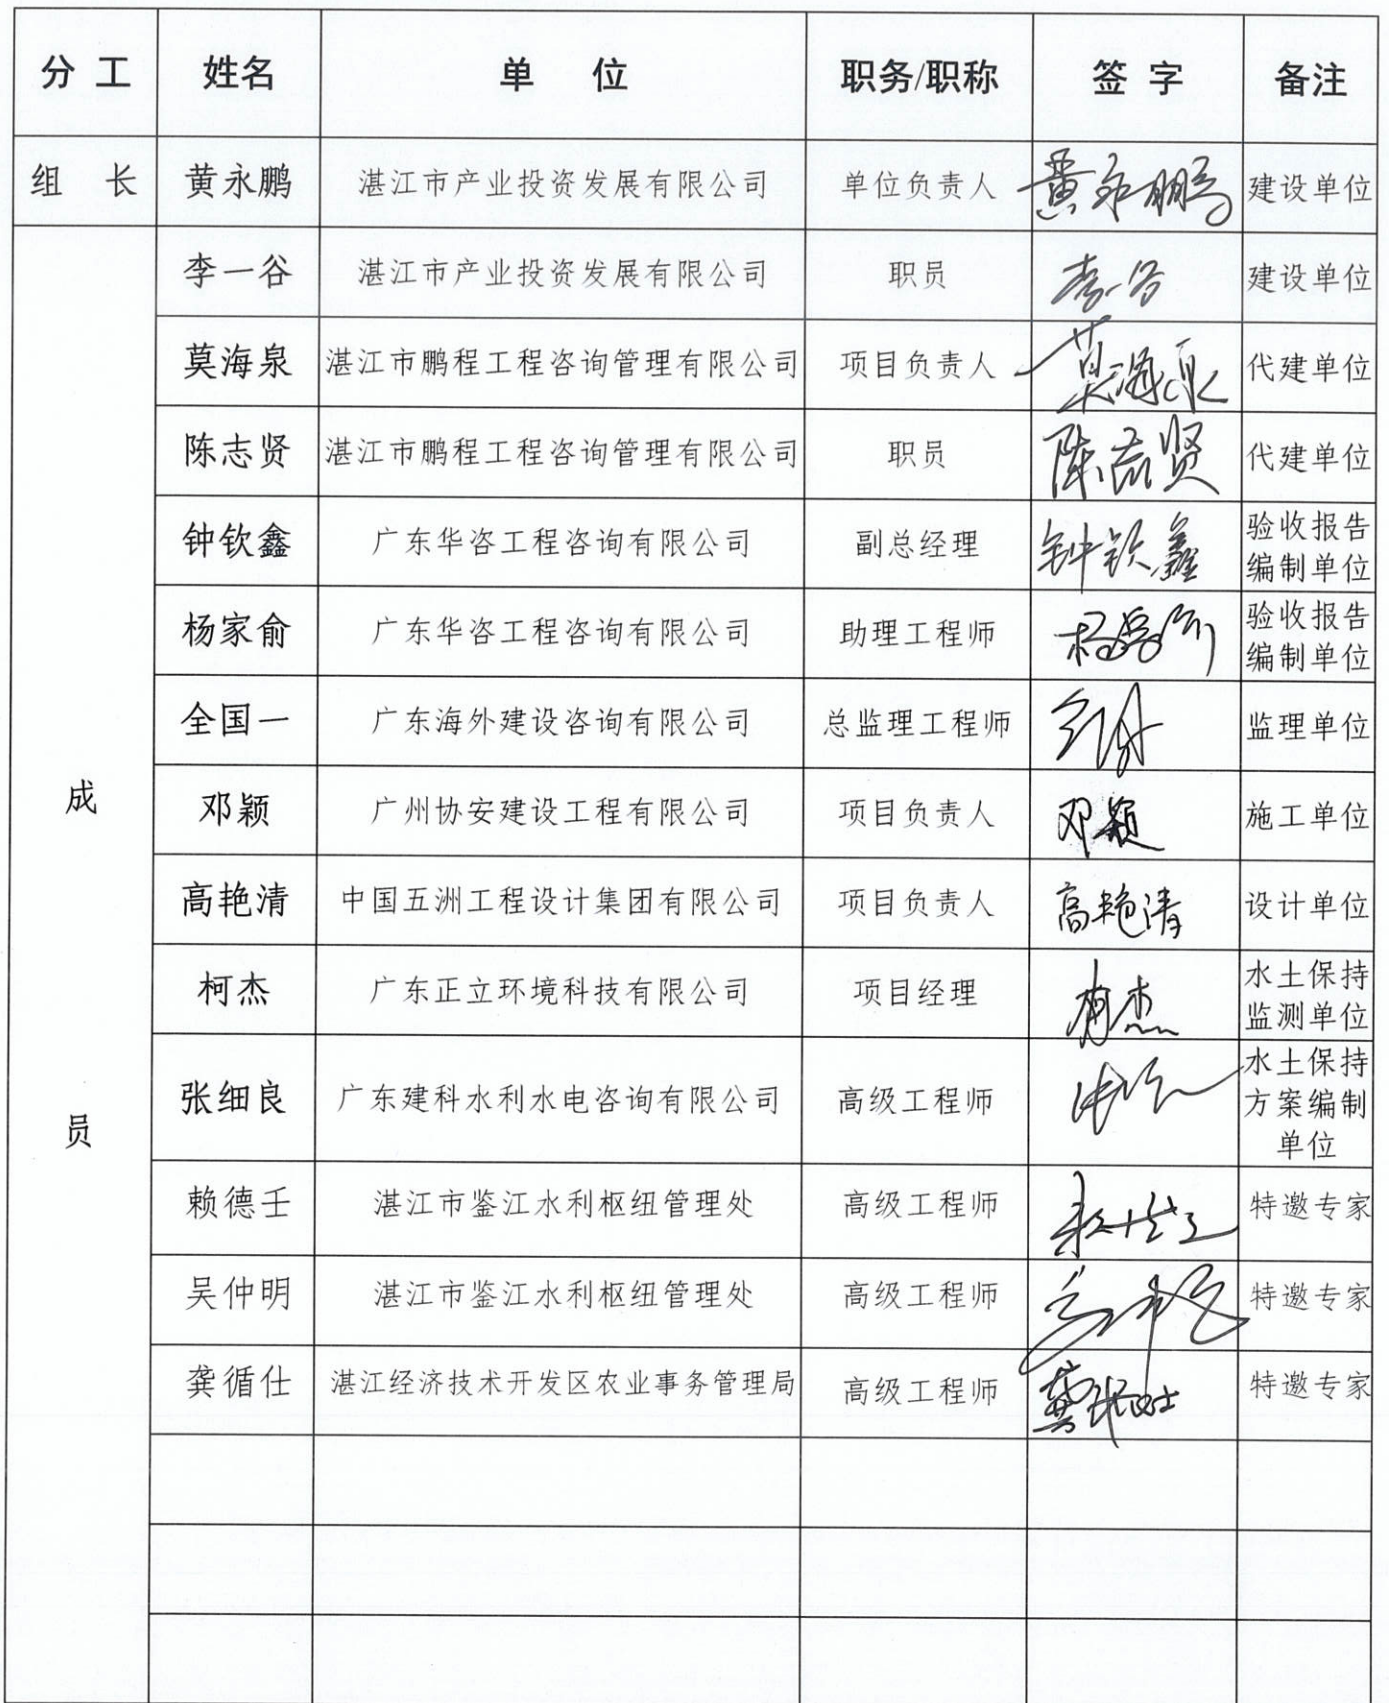 分 工 姓名 单 位 职务/职称 签 字 备注
组 长 黄永鹏 湛江市产业投资发展有限公司 单位负责人 黄永鹏 建设单位
李一谷 湛江市产业投资发展有限公司 职员 李一谷 建设单位
莫海泉 湛江市鹏程工程咨询管理有限公司 项目负责人 莫海泉 代建单位
陈志贤 湛江市鹏程工程咨询管理有限公司 职员 陈志贤 代建单位
钟钦鑫 广东华咨工程咨询有限公司 副总经理 钟钦鑫 验收报告
编制单位
杨家俞 广东华咨工程咨询有限公司 助理工程师 验收报告
编制单位
全国一 广东海外建设咨询有限公司 总监理工程师 监理单位
成
邓颖 广州协安建设工程有限公司 项目负责人 邓颖 施工单位
高艳清 中国五洲工程设计集团有限公司 项目负责人 高艳清 设计单位
柯杰 广东正立环境科技有限公司 项目经理 柯杰 水土保持
监测单位
员
张细良 广东建科水利水电咨询有限公司 高级工程师 水土保持
方案编制
单位
赖德壬 湛江市鉴江水利枢纽管理处 高级工程师 特邀专家
吴仲明 湛江市鉴江水利枢纽管理处 高级工程师 特邀专家
龚循仕 湛江经济技术开发区农业事务管理局 高级工程师 特邀专家